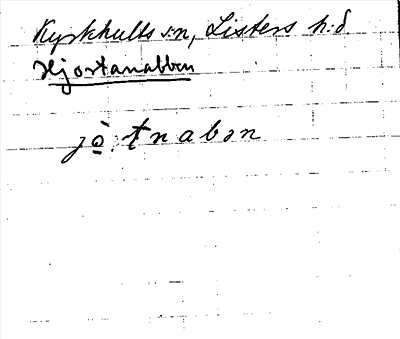 Kyrkhults sn, Listers h:d
Hjortanabben
jò̲:tnabən